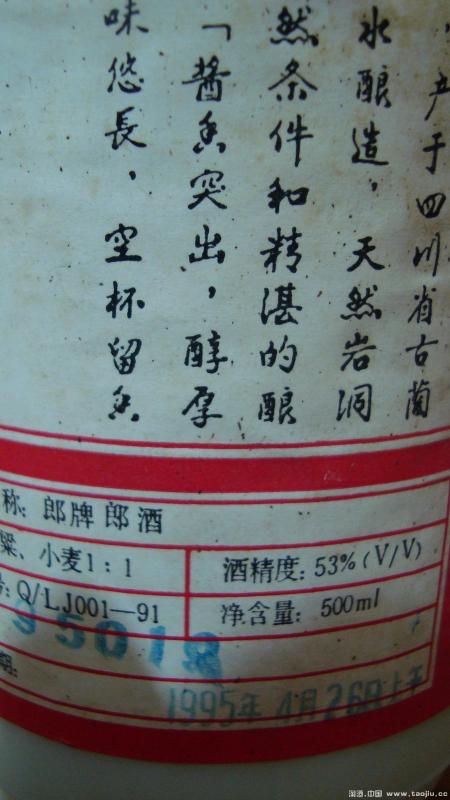 产于四川省古蔺
水酿造，天然岩洞
然条件和精湛的酿
「酱香突出，醇厚
味悠長，空杯留香
称：郎牌郎酒
粱、小麦1：1
酒精度：53%(V/V)
号：Q/LJ001—91
净含量：500ml
95018
期：
1995年4月26日上午
淘酒.中国 www.taojiu.cc